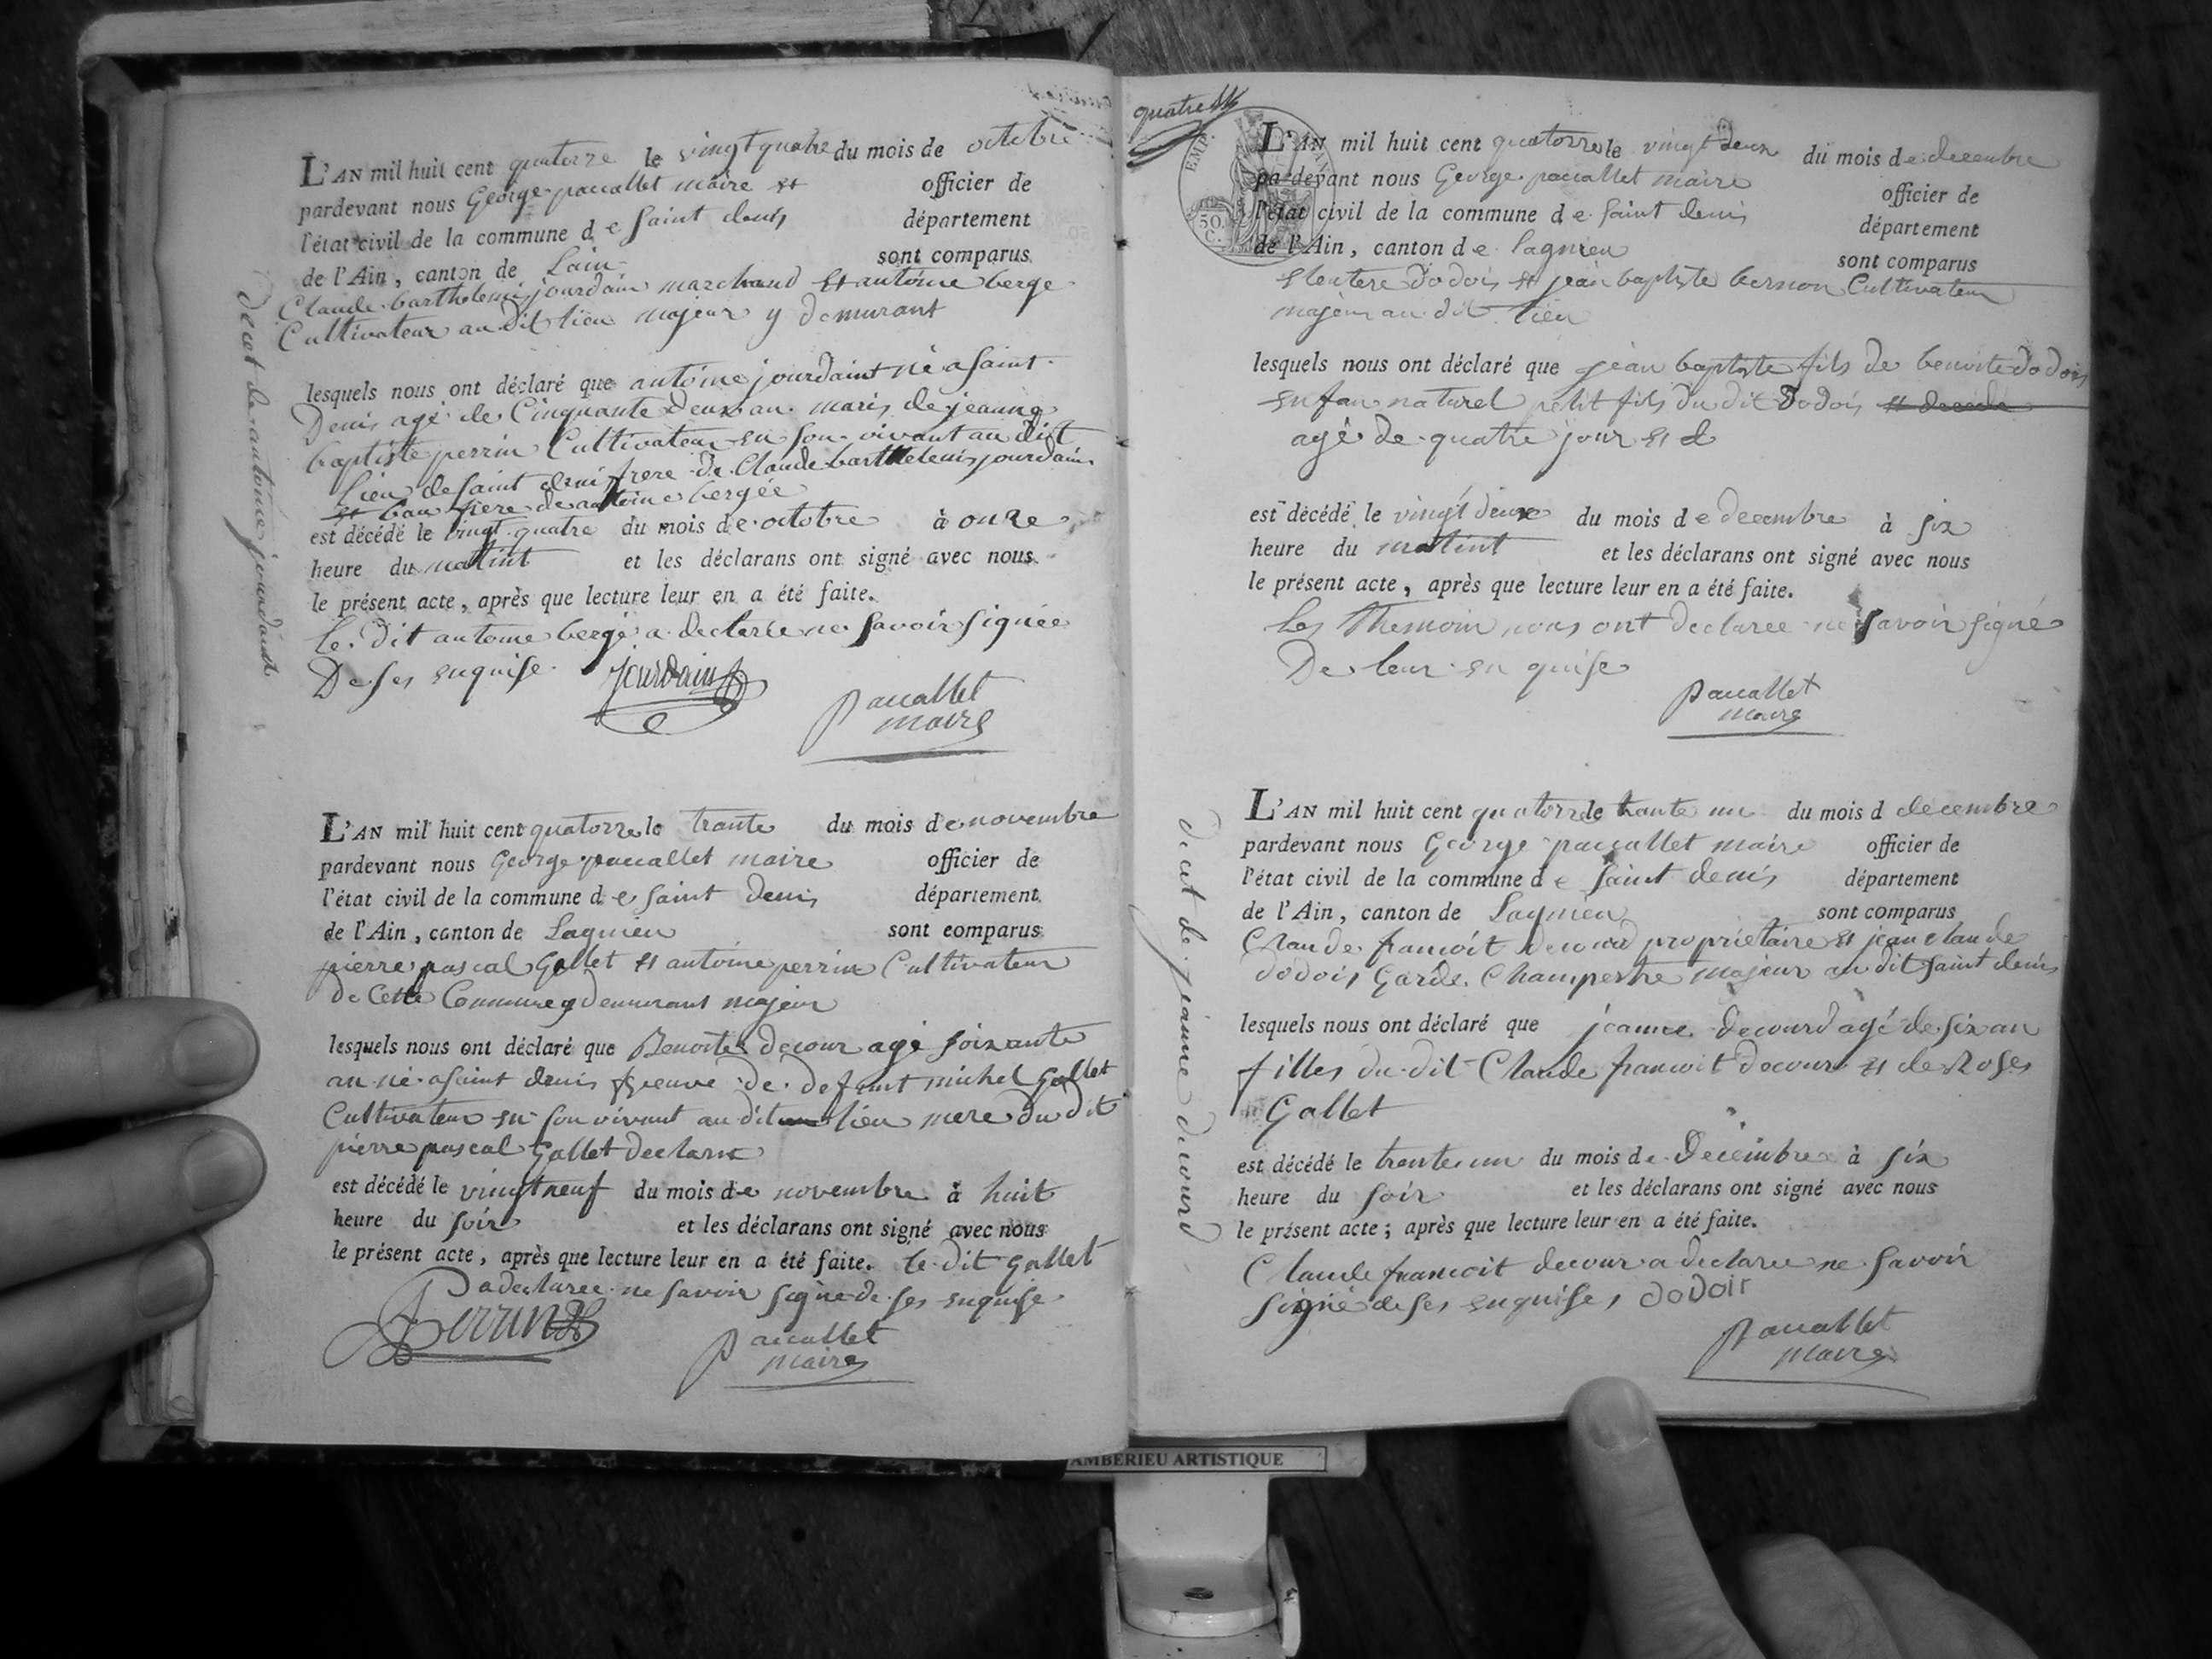 L'AN mil huit cent quatorze le vingt quatre du mois de octobre
pardevant nous George paccallet maire et officier de
l'état civil de la commune d e saint denis département
de l'Ain, canton de Lain sont comparus
Claude barthelemis jourdain marchand et antoine berge
Cultivateur au dit lieu majeur y demurant
lesquels nous ont déclaré que antoine jourdaint né a saint
Denis agé de Cinquante Deux an maris de jeanne
baptiste perrin Cultivateur en son vivant au dit
lieu de saint deni frere de Claude barthelemis jourdain
et bau frere de antoine bergée
est décédé le vingt quatre du mois de octobre à onze
heure du matint et les déclarans ont signé avec nous
le présent acte, après que lecture leur en a été faite.
le dit antoine bergé a declaree ne savoir signée
De ses enquise jourdain
paccallet
maire
decet de antoine jourdaint
L'AN mil huit cent quatorze le trante du mois de novembre
pardevant nous George paccallet maire officier de
l'état civil de la commune d e saint Denis département
de l'Ain, canton de Lagnieu sont comparus
pierre pascal Gallet et antoine perrin Cultivateur
de Cette Commune y demurant majeur
lesquels nous ont déclaré que Benoite decour agé soixante
an né a saint denis veuve de defunt michel Gallet
Cultivateur en son vivant au dit lieu mere du dit
pierre pascal Gallet declarant
est décédé le vingt neuf du mois de novembre à huit
heure du soir et les déclarans ont signé avec nous
le présent acte, après que lecture leur en a été faite. le dit Gallet
a declaree ne savoir signé de ses enquise
Perrin
paccallet
maire
quatre
EMP.
50
C.
L'AN mil huit cent quatorze le vingt deux du mois de decembre
pardevant nous George paccallet maire officier de
l'état civil de la commune d e saint denis département
de l'Ain, canton d e lagnieu sont comparus
eleutere Dodois et jean baptiste bernon Cultivateur
majeur au dit lieu
lesquels nous ont déclaré que jean baptiste fils de benoite dodois
enfan naturel petit fils du dit Dodois et decede
agé de quatre jour et d
est décédé le vingt deux du mois d e decembre à six
heure du matint et les déclarans ont signé avec nous
le présent acte, après que lecture leur en a été faite.
les themoin nous ont declaree ne savoir signé
De leur en quise
paccallet
maire
L'AN mil huit cent quatorze le trante un du mois d decembre
pardevant nous George paccallet maire officier de
l'état civil de la commune d e saint denis département
de l'Ain, canton de Lagnieu sont comparus
Claude francoit decourd propriétaire et jean claude
dodois Garde Champestre majeur au dit saint denis
lesquels nous ont déclaré que jeanne decourd agé de six an
filles du dit Claude francoit decourd et de Roses
Gallet
est décédé le trante un du mois de Decembre à six
heure du soir et les déclarans ont signé avec nous
le présent acte; après que lecture leur en a été faite.
Claude francoit decour a declaree ne savoir
signé de ses enquises dodoir
paccallet
maire
decet de jeanne decourd
AMBERIEU ARTISTIQUE